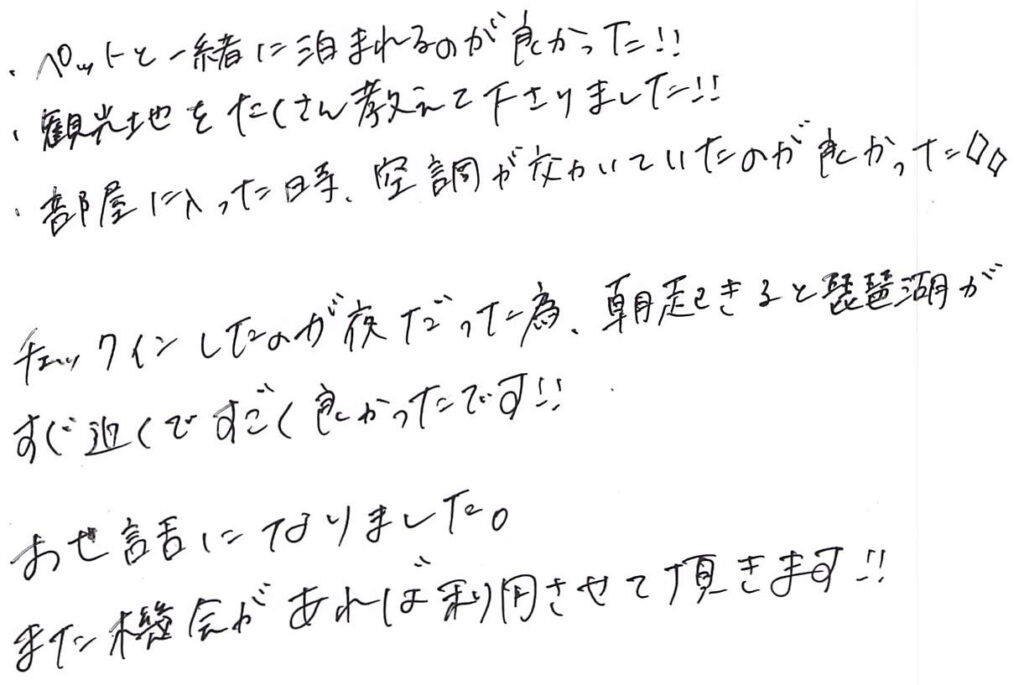 ・ペットと一緒に泊まれるのが良かった!!
・観光地をたくさん教えて下さりました!!
・部屋に入った時、空調が効いていたのが良かった!!
チェックインしたのが夜だった為、朝起きると琵琶湖が
すぐ近くですごく良かったです!!
お世話になりました。
また機会があれば利用させて頂きます!!